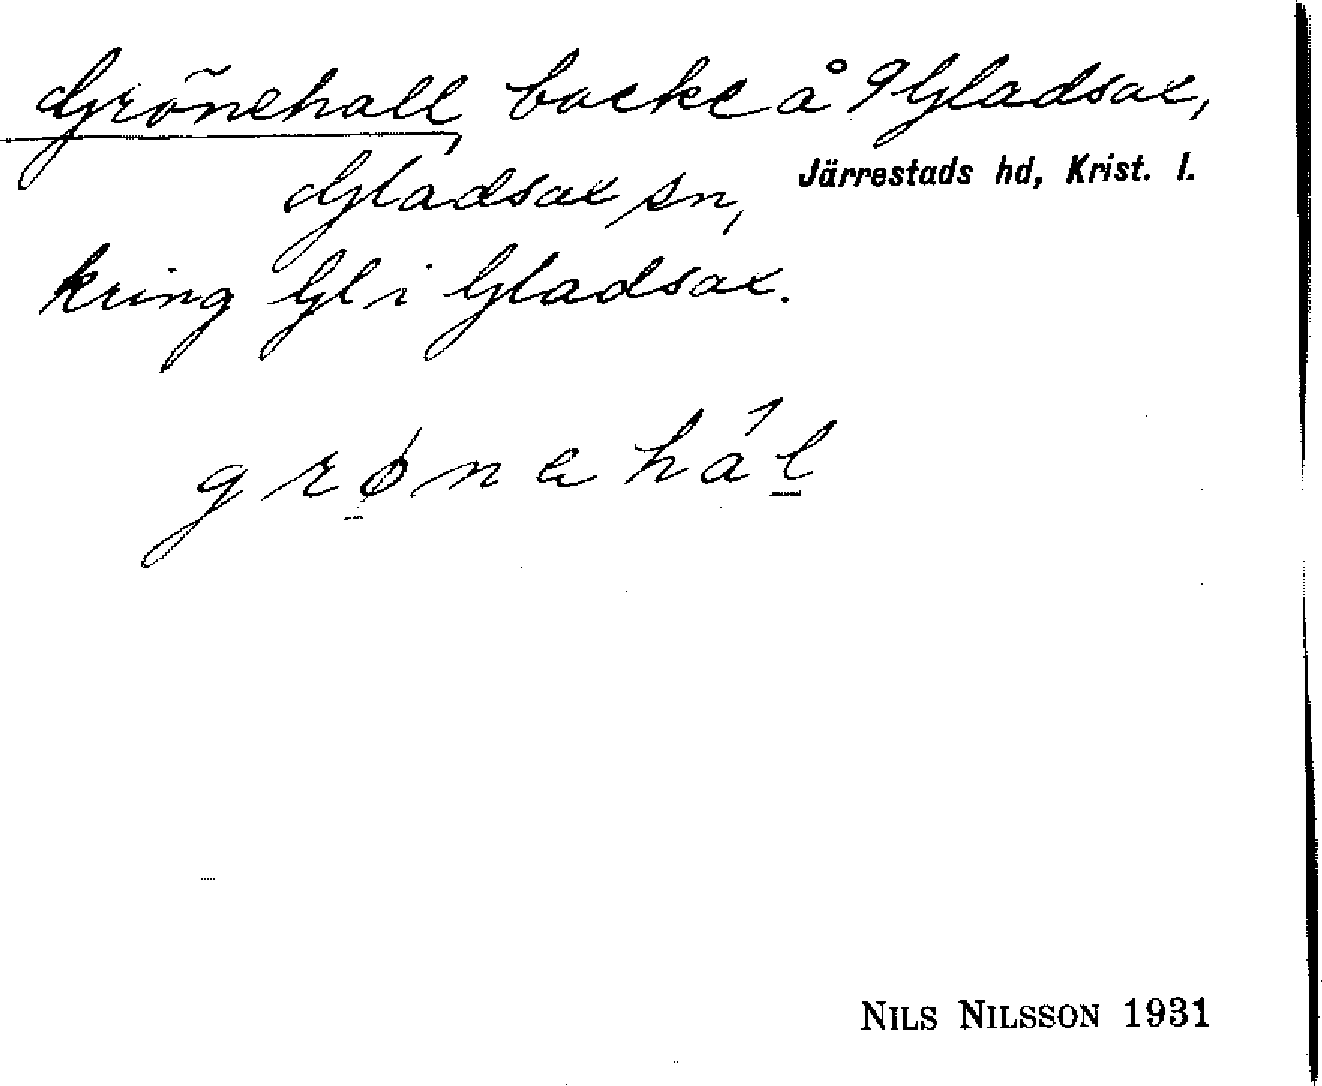 Grönehall, backe å 9 Gladsax,
Gladsax sn, Järrestads hd, Krist. l.
kring Gl i Gladsax.
grønahál
NILS NILSSON 1931